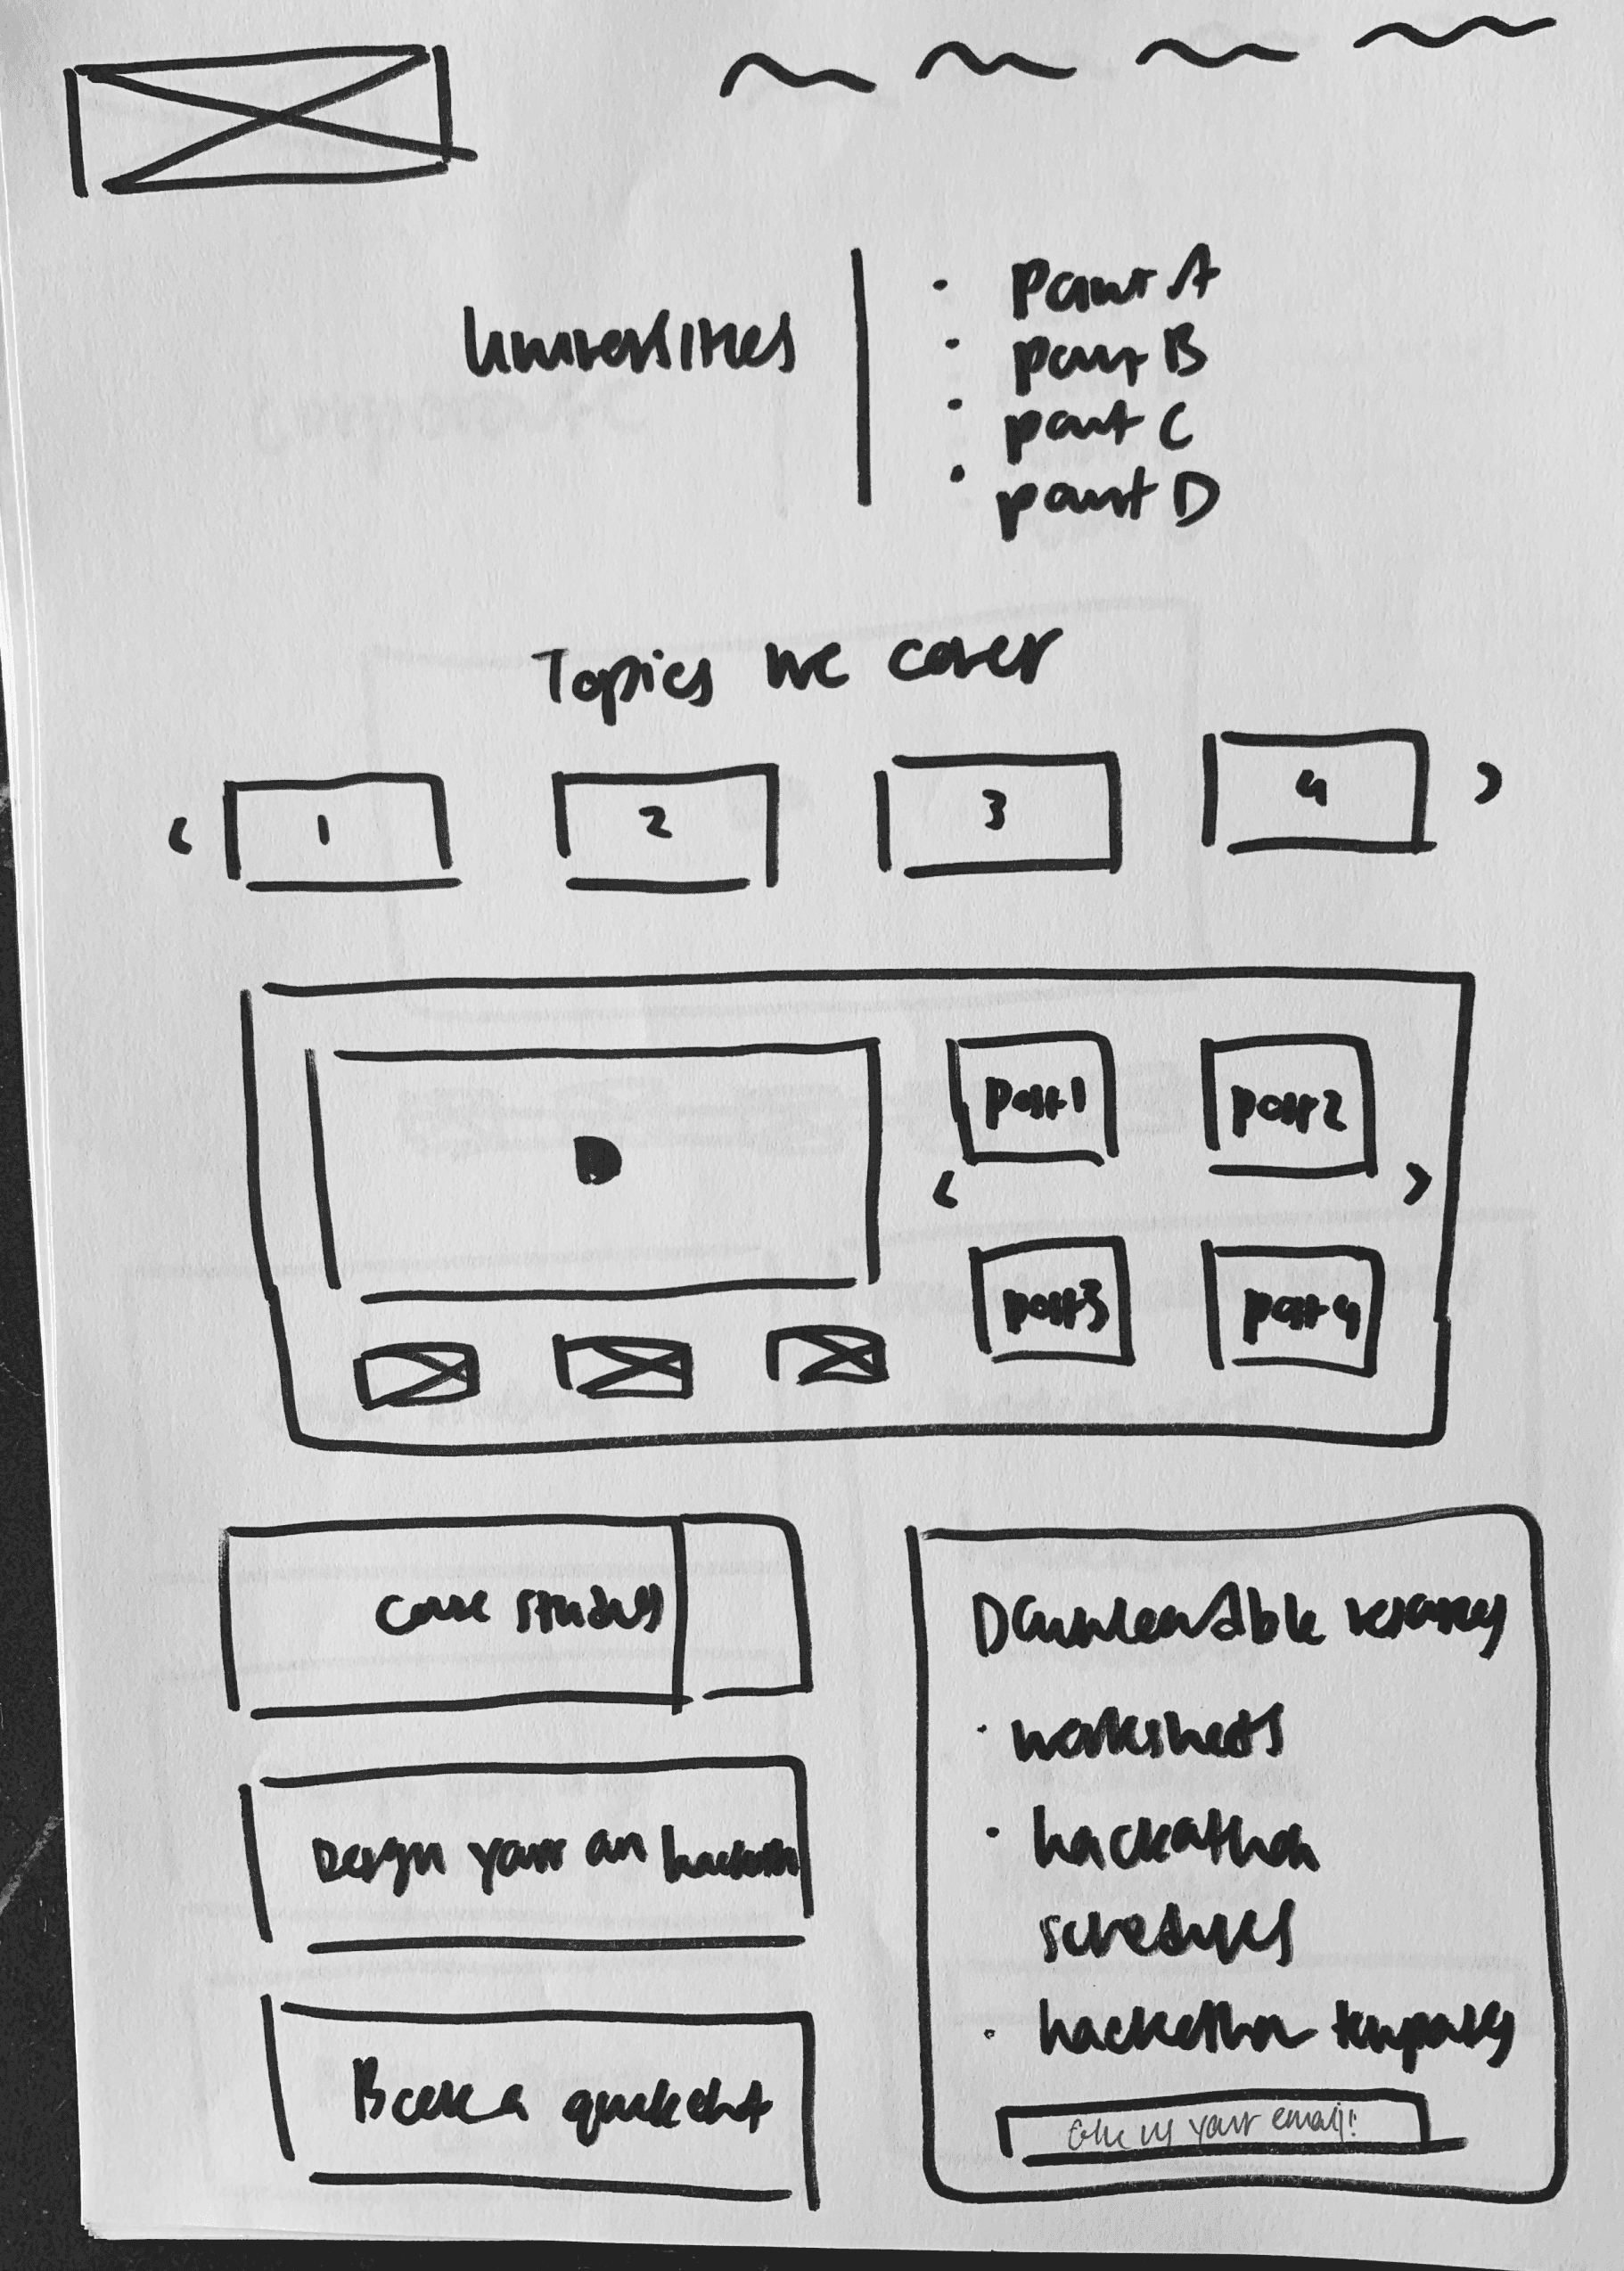 Universities
Point A
point B
point C
point D
Topics we cover
1 2 3 4
part 1 part 2
part 3 part 4
case studies
Downloadable resources
worksheets
Design your own hackathon
hackathon
schedules
hackathon templates
Book a quick chat
Give us your email!